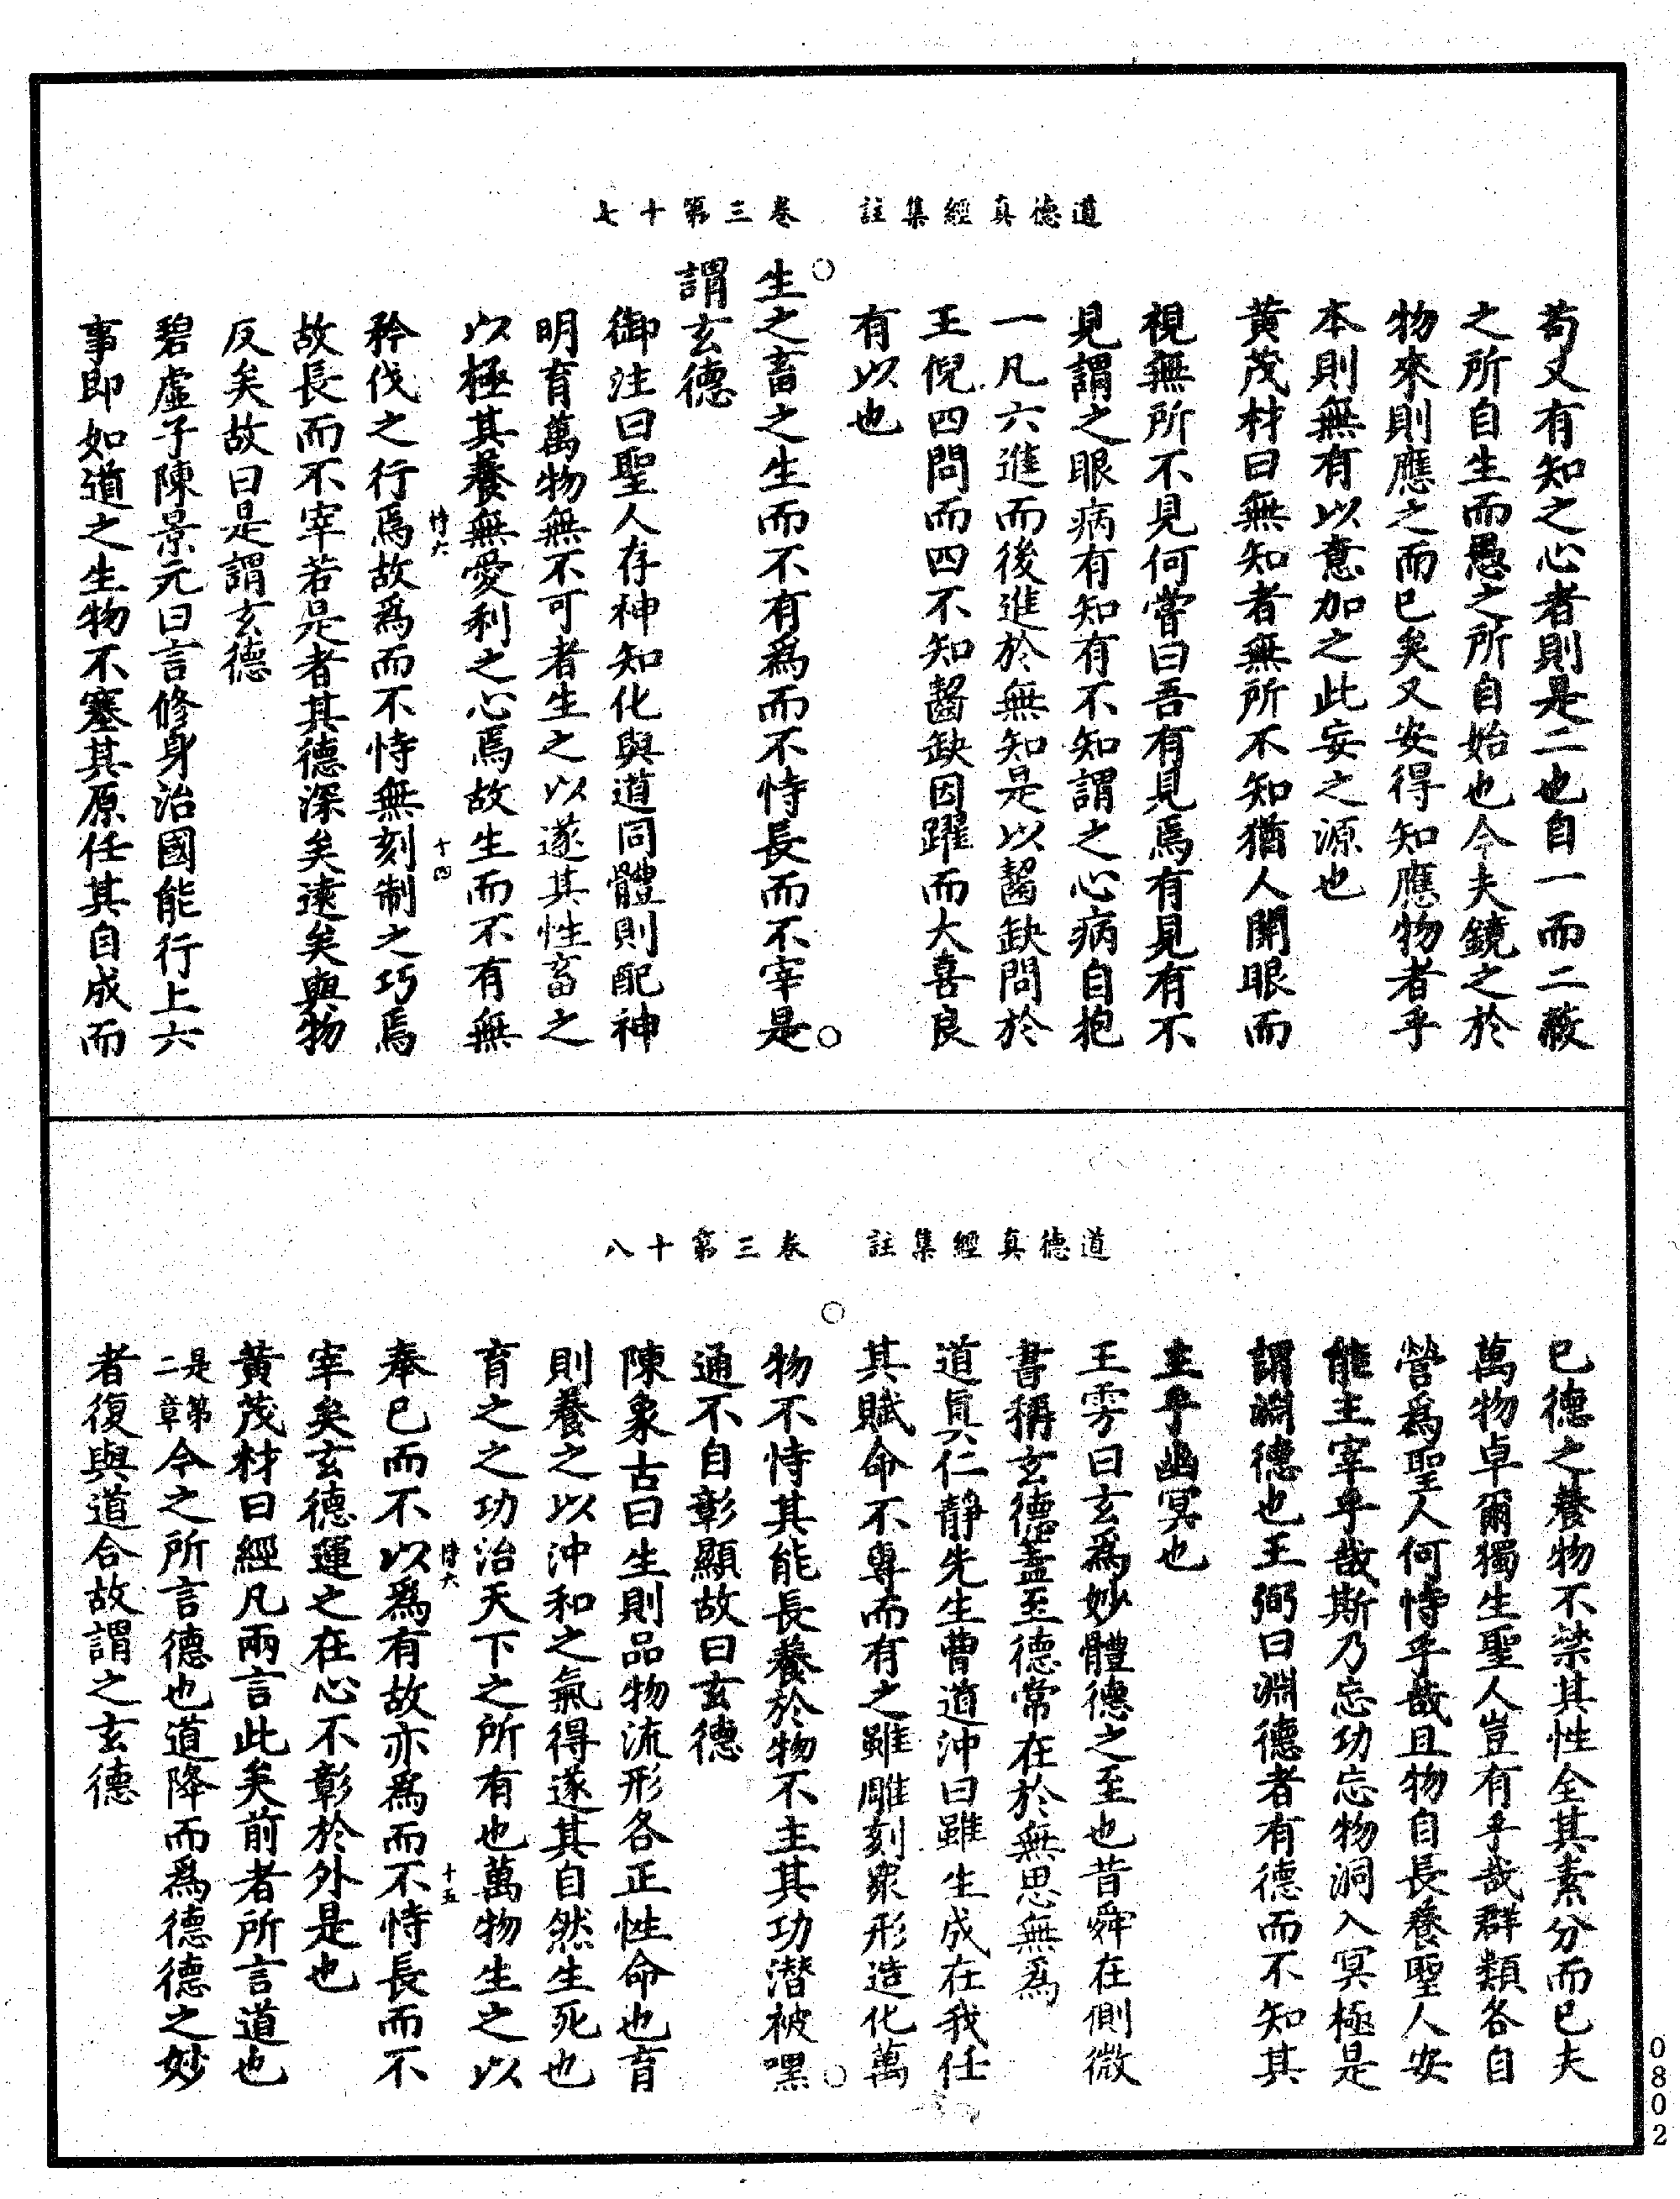 道德真經集註　卷三第十七
苟又有知之心者則是二也自一而二蔽
之所自生而愚之所自始也今夫鏡之於
物來則應之而已矣又安得知應物者乎
本則無有以意加之此妄之源也
黃茂材曰無知者無所不知猶人開眼而
視無所不見何嘗曰吾有見焉有見有不
見謂之眼病有知有不知謂之心病自抱
一凡六進而後進於無知是以齧缺問於
王倪四問而四不知齧缺因躍而大喜良
有以也
生之畜之生而不有為而不恃長而不宰是
謂玄德
御注曰聖人存神知化與道同體則配神
明育萬物無不可者生之以遂其性畜之
以極其養無愛利之心焉故生而不有無
恃六　十四
矜伐之行焉故爲而不恃無刻制之巧焉
故長而不宰若是者其德深矣遠矣與物
反矣故曰是謂玄德
碧虛子陳景元曰言修身治國能行上六
事即如道之生物不塞其原任其自成而
道德真經集註　卷三第十八
已德之養物不禁其性全其素分而已夫
萬物卓爾獨生聖人豈有乎哉群類各自
營爲聖人何恃乎哉且物自長養聖人安
能主宰乎哉斯乃忘功忘物洞入冥極是
謂淵德也王弼曰淵德者有德而不知其
主乎幽冥也
王雱曰玄爲妙體德之至也昔舜在側微
書稱玄德蓋至德常在於無思無爲
道眞仁靜先生曹道沖曰雖生成在我任
其賦命不專而有之雖雕刻衆形造化萬
物不恃其能長養於物不主其功潛被嘿
通不自彰顯故曰玄德
陳象古曰生則品物流形各正性命也育
則養之以沖和之氣得遂其自然生死也
育之之功治天下之所有也萬物生之以
恃六　十五
奉已而不以爲有故亦爲而不恃長而不
宰矣玄德運之在心不彰於外是也
黃茂材曰經凡兩言此矣前者所言道也
是第二章今之所言德也道降而爲德德之妙
者復與道合故謂之玄德
0802